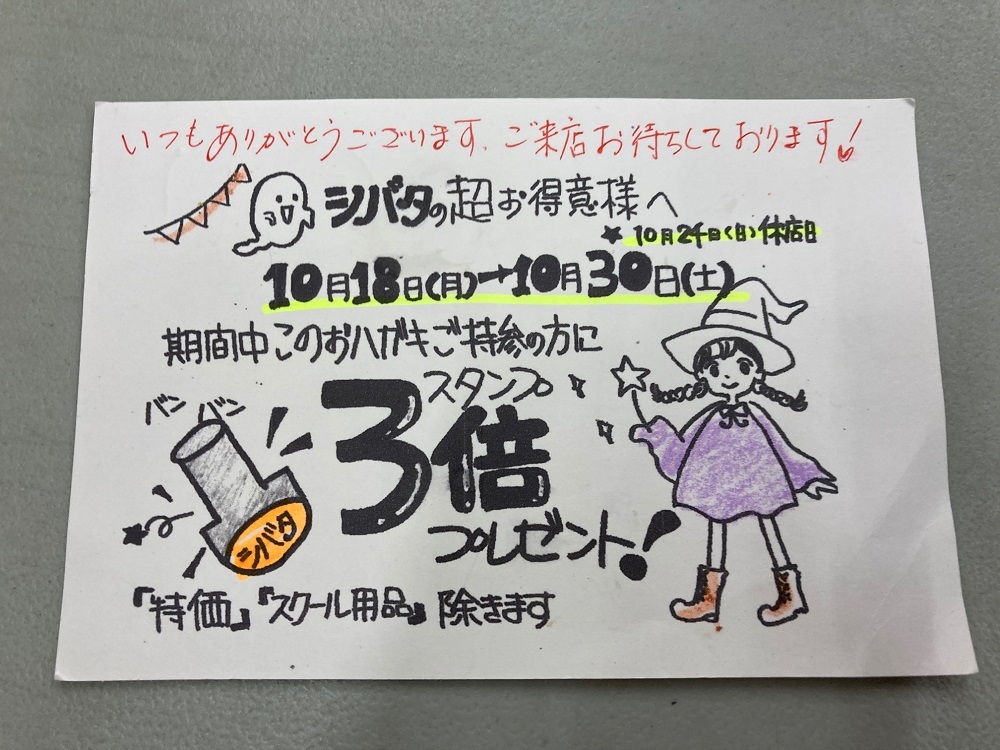 いつもありがとうございます、ご来店お待ちしております!
シバタの超お得意様へ
★10月24日(日)休店日
10月18日(月)→10月30日(土)
期間中このおハガキご持参の方に
スタンプ
バン バン
3倍
シバタ
プレゼント!
『特価』『スクール用品』除きます